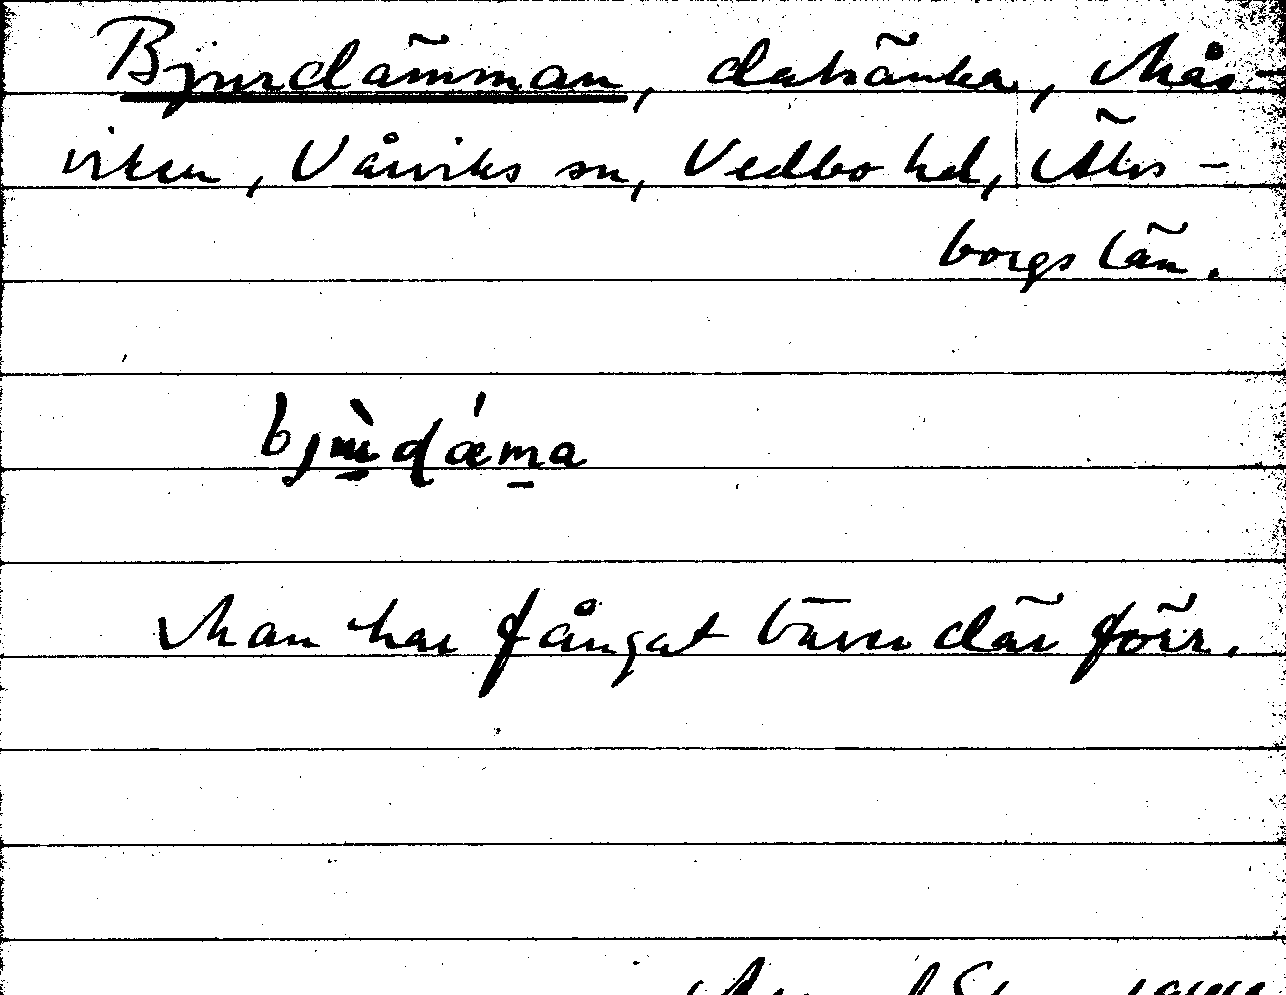 Bjurdämman, dalsänka, Mås-
viken, Vårviks sn, Vedbo hd, Älvs-
borgs län.
Man har fångat bäver där förr.